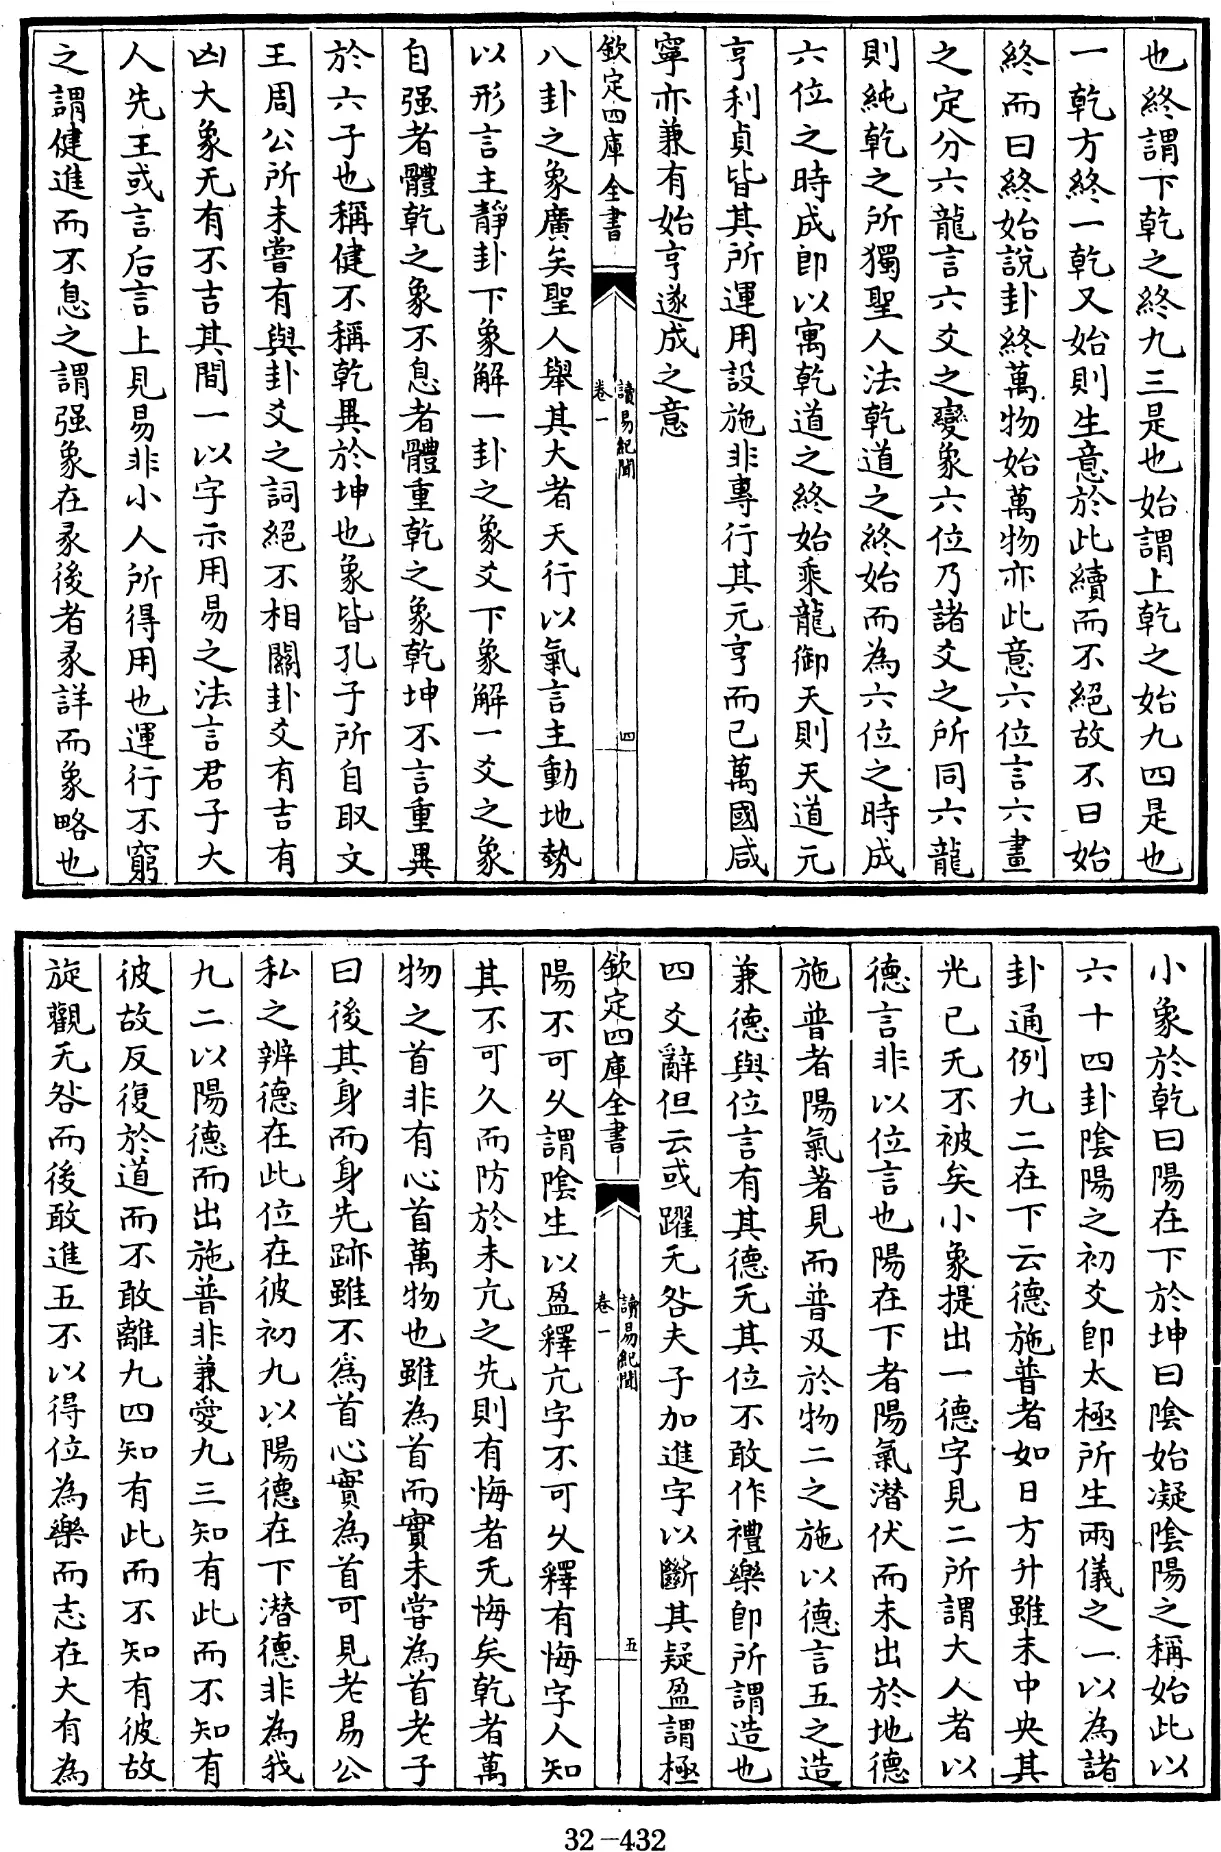 也終謂下乾之終九三是也始謂上乾之始九四是也
一乾方終一乾又始則生意於此續而不絕故不曰始
終而曰終始說卦終萬物始萬物亦此意六位言六畫
之定分六龍言六爻之變象六位乃諸爻之所同六龍
則純乾之所獨聖人法乾道之終始而為六位之時成
六位之時成即以寓乾道之終始乘龍御天則天道元
亨利貞皆其所運用設施非專行其元亨而已萬國咸
寧亦兼有始亨遂成之意
欽定四庫全書
讀易紀聞
卷一
四
八卦之象廣矣聖人舉其大者天行以氣言主動地勢
以形言主靜卦下象解一卦之象爻下象解一爻之象
自强者體乾之象不息者體重乾之象乾坤不言重異
於六子也稱健不稱乾異於坤也象皆孔子所自取文
王周公所未嘗有與卦爻之詞絕不相關卦爻有吉有
凶大象无有不吉其間一以字示用易之法言君子大
人先王或言后言上見易非小人所得用也運行不窮
之謂健進而不息之謂强象在彖後者彖詳而象略也
小象於乾曰陽在下於坤曰陰始凝陰陽之稱始此以
六十四卦陰陽之初爻即太極所生兩儀之一以為諸
卦通例九二在下云德施普者如日方升雖未中央其
光已无不被矣小象提出一德字見二所謂大人者以
德言非以位言也陽在下者陽氣潛伏而未出於地德
施普者陽氣著見而普及於物二之施以德言五之造
兼德與位言有其德无其位不敢作禮樂即所謂造也
四爻辭但云或躍无咎夫子加進字以斷其疑盈謂極
欽定四庫全書
讀易紀聞
卷一
五
陽不可乆謂陰生以盈釋亢字不可乆釋有悔字人知
其不可久而防於未亢之先則有悔者无悔矣乾者萬
物之首非有心首萬物也雖為首而實未嘗為首老子
曰後其身而身先跡雖不爲首心實為首可見老易公
私之辨德在此位在彼初九以陽德在下潛德非為我
九二以陽德而出施普非兼愛九三知有此而不知有
彼故反復於道而不敢離九四知有此而不知有彼故
旋觀无咎而後敢進五不以得位為樂而志在大有為
32-432